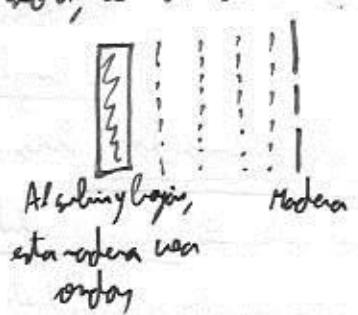 Al subir y bajar,
esta madera crea
ondas
Madera